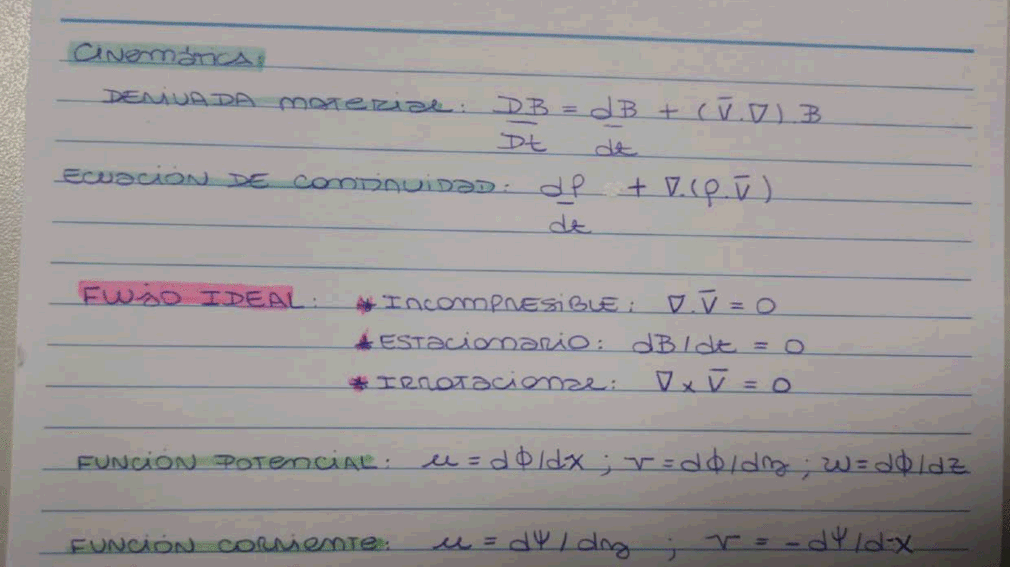 Cinemática:
DERIVADA material: DB/Dt = dB/dt + (V̄.∇) B
ECUACIÓN DE CONTINUIDAD: dρ/dt + ∇.(ρ.V̄)
FLUJO IDEAL: * INCOMPRESIBLE: ∇.V̄ = 0
* ESTACIONARIO: dB/dt = 0
* IRROTACIONAL: ∇ x V̄ = 0
FUNCIÓN POTENCIAL: u = dϕ/dx ; v = dϕ/dy ; w = dϕ/dz
FUNCIÓN CORRIENTE: u = dΨ/dy ; v = -dΨ/dx